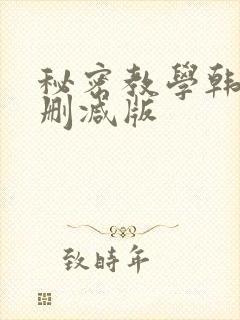 秘密教學韩
删减版
致時年